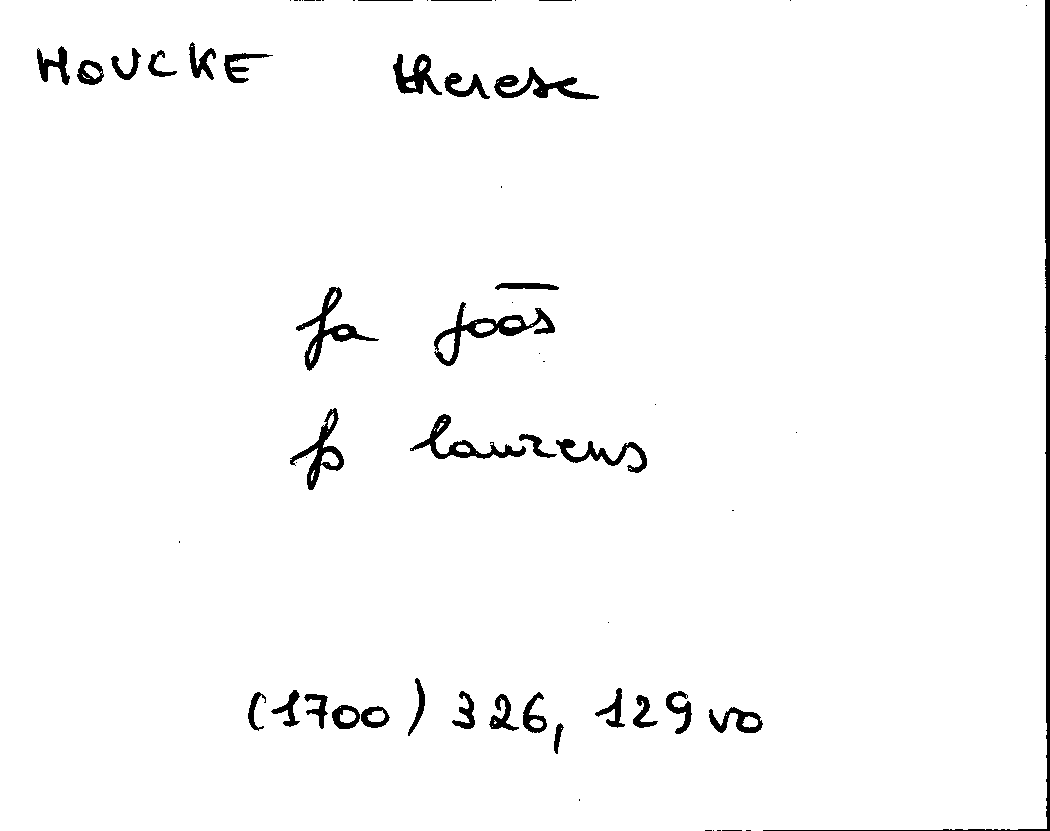 HOUCKE therese
fa joos
fs laurens
(1700) 326, 129 vo